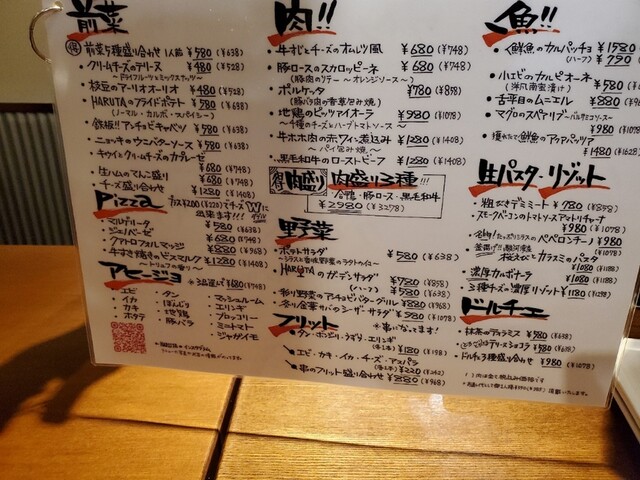 前菜
得 前菜5種盛り合わせ 1人前 ¥580 (¥638)
・クリームチーズのテリーヌ ¥480 (¥528)
〜ドライフルーツとミックスナッツ〜
・枝豆のアーリオオーリオ ¥480 (¥528)
・HARUTAのフライドポテト ¥580 (¥638)
(ノーマル・カルボ・スパイシー)
・鉄板!! アンチョビキャベツ ¥580 (¥638)
・ニョッキのウニバターソース ¥580 (¥638)
・キウイとクリームチーズのカプレーゼ ¥580 (¥638)
・生ハムのてんこ盛り ¥680 (¥748)
・チーズ盛り合わせ ¥1280 (¥1408)
Pizza
プラス¥200(¥220)でチーズW
出来ます!!!
・マルゲリータ ¥580 (¥638)
・ジェノベーゼ ¥680 (¥748)
・クアトロフォルマッジ ¥880 (¥968)
・牛すき焼きのビスマルク ¥1280 (¥1408)
〜トリュフの香り〜
アヒージョ
¥680 (¥748)
・エビ
・イカ
・カキ
・ホタテ
・タン
・ぽんじり
・地鶏
・豚バラ
・マッシュルーム
・エリンギ
・ブロッコリー
・ミニトマト
・ジャガイモ
肉!!
・牛すじとチーズのオムレツ風 ¥680 (¥748)
・豚ロースのスカロッピーネ ¥680 (¥748)
(豚肉のソテー 〜オレンジソース〜)
・ポルケッタ ¥780 (¥858)
(豚バラ肉の香草包み焼)
・地鶏のピッツァイオーラ ¥980 (¥1078)
〜4種のチーズとハーブトマトソース〜
・牛ホホ肉の赤ワイン煮込み ¥1280 (¥1408)
〜パイ包み焼〜
・黒毛和牛のローストビーフ ¥1280 (¥1408)
得 肉盛り 肉盛り3種!!!
合鴨・豚ロース・黒毛和牛
¥2980 (¥3278)
野菜
・ポテトサラダ ¥580 (¥638)
・HARUTAのガーデンサラダ ¥780 (¥858)
(ハーフ) ¥580 (¥638)
・彩り野菜のアンチョビバターグリル ¥880 (¥968)
・冬り金華サバのシーザーサラダ ¥980 (¥1078)
フリット
※串に入ってます!
・タン・ぽんじり・うずら・エリンギ
(各1本) ¥180 (¥198)
・エビ・カキ・イカ・チーズ・アスパラ
(各1本) ¥220 (¥242)
・串のフリット盛り合わせ ¥880 (¥968)
魚!!
・鮮魚のカルパッチョ ¥1580
(ハーフ) ¥790
・小エビのカルピオーネ ¥580
(洋風南蛮漬け)
・舌平目のムニエル ¥880
・マグロのスペアリブ ¥980
・獲れたて鮮魚のアクアパッツァ
¥1480 (¥1628)
生パスタ・リゾット
・粗びきデミミート ¥780 (¥858)
・スモークベーコンのトマトソースアマトリチャーナ
¥980 (¥1078)
・ペペロンチーノ ¥980 (¥1078)
・桜えびとカラスミのパスタ
¥1080 (¥1188)
・濃厚カルボナーラ ¥1080 (¥1188)
・3種チーズの濃厚リゾット ¥1180 (¥1298)
ドルチェ
・抹茶のティラミス ¥580 (¥638)
・テリーヌショコラ ¥580 (¥638)
・ドルチェ3種盛り合せ ¥980 (¥1078)
( )内は全て税込み価格です